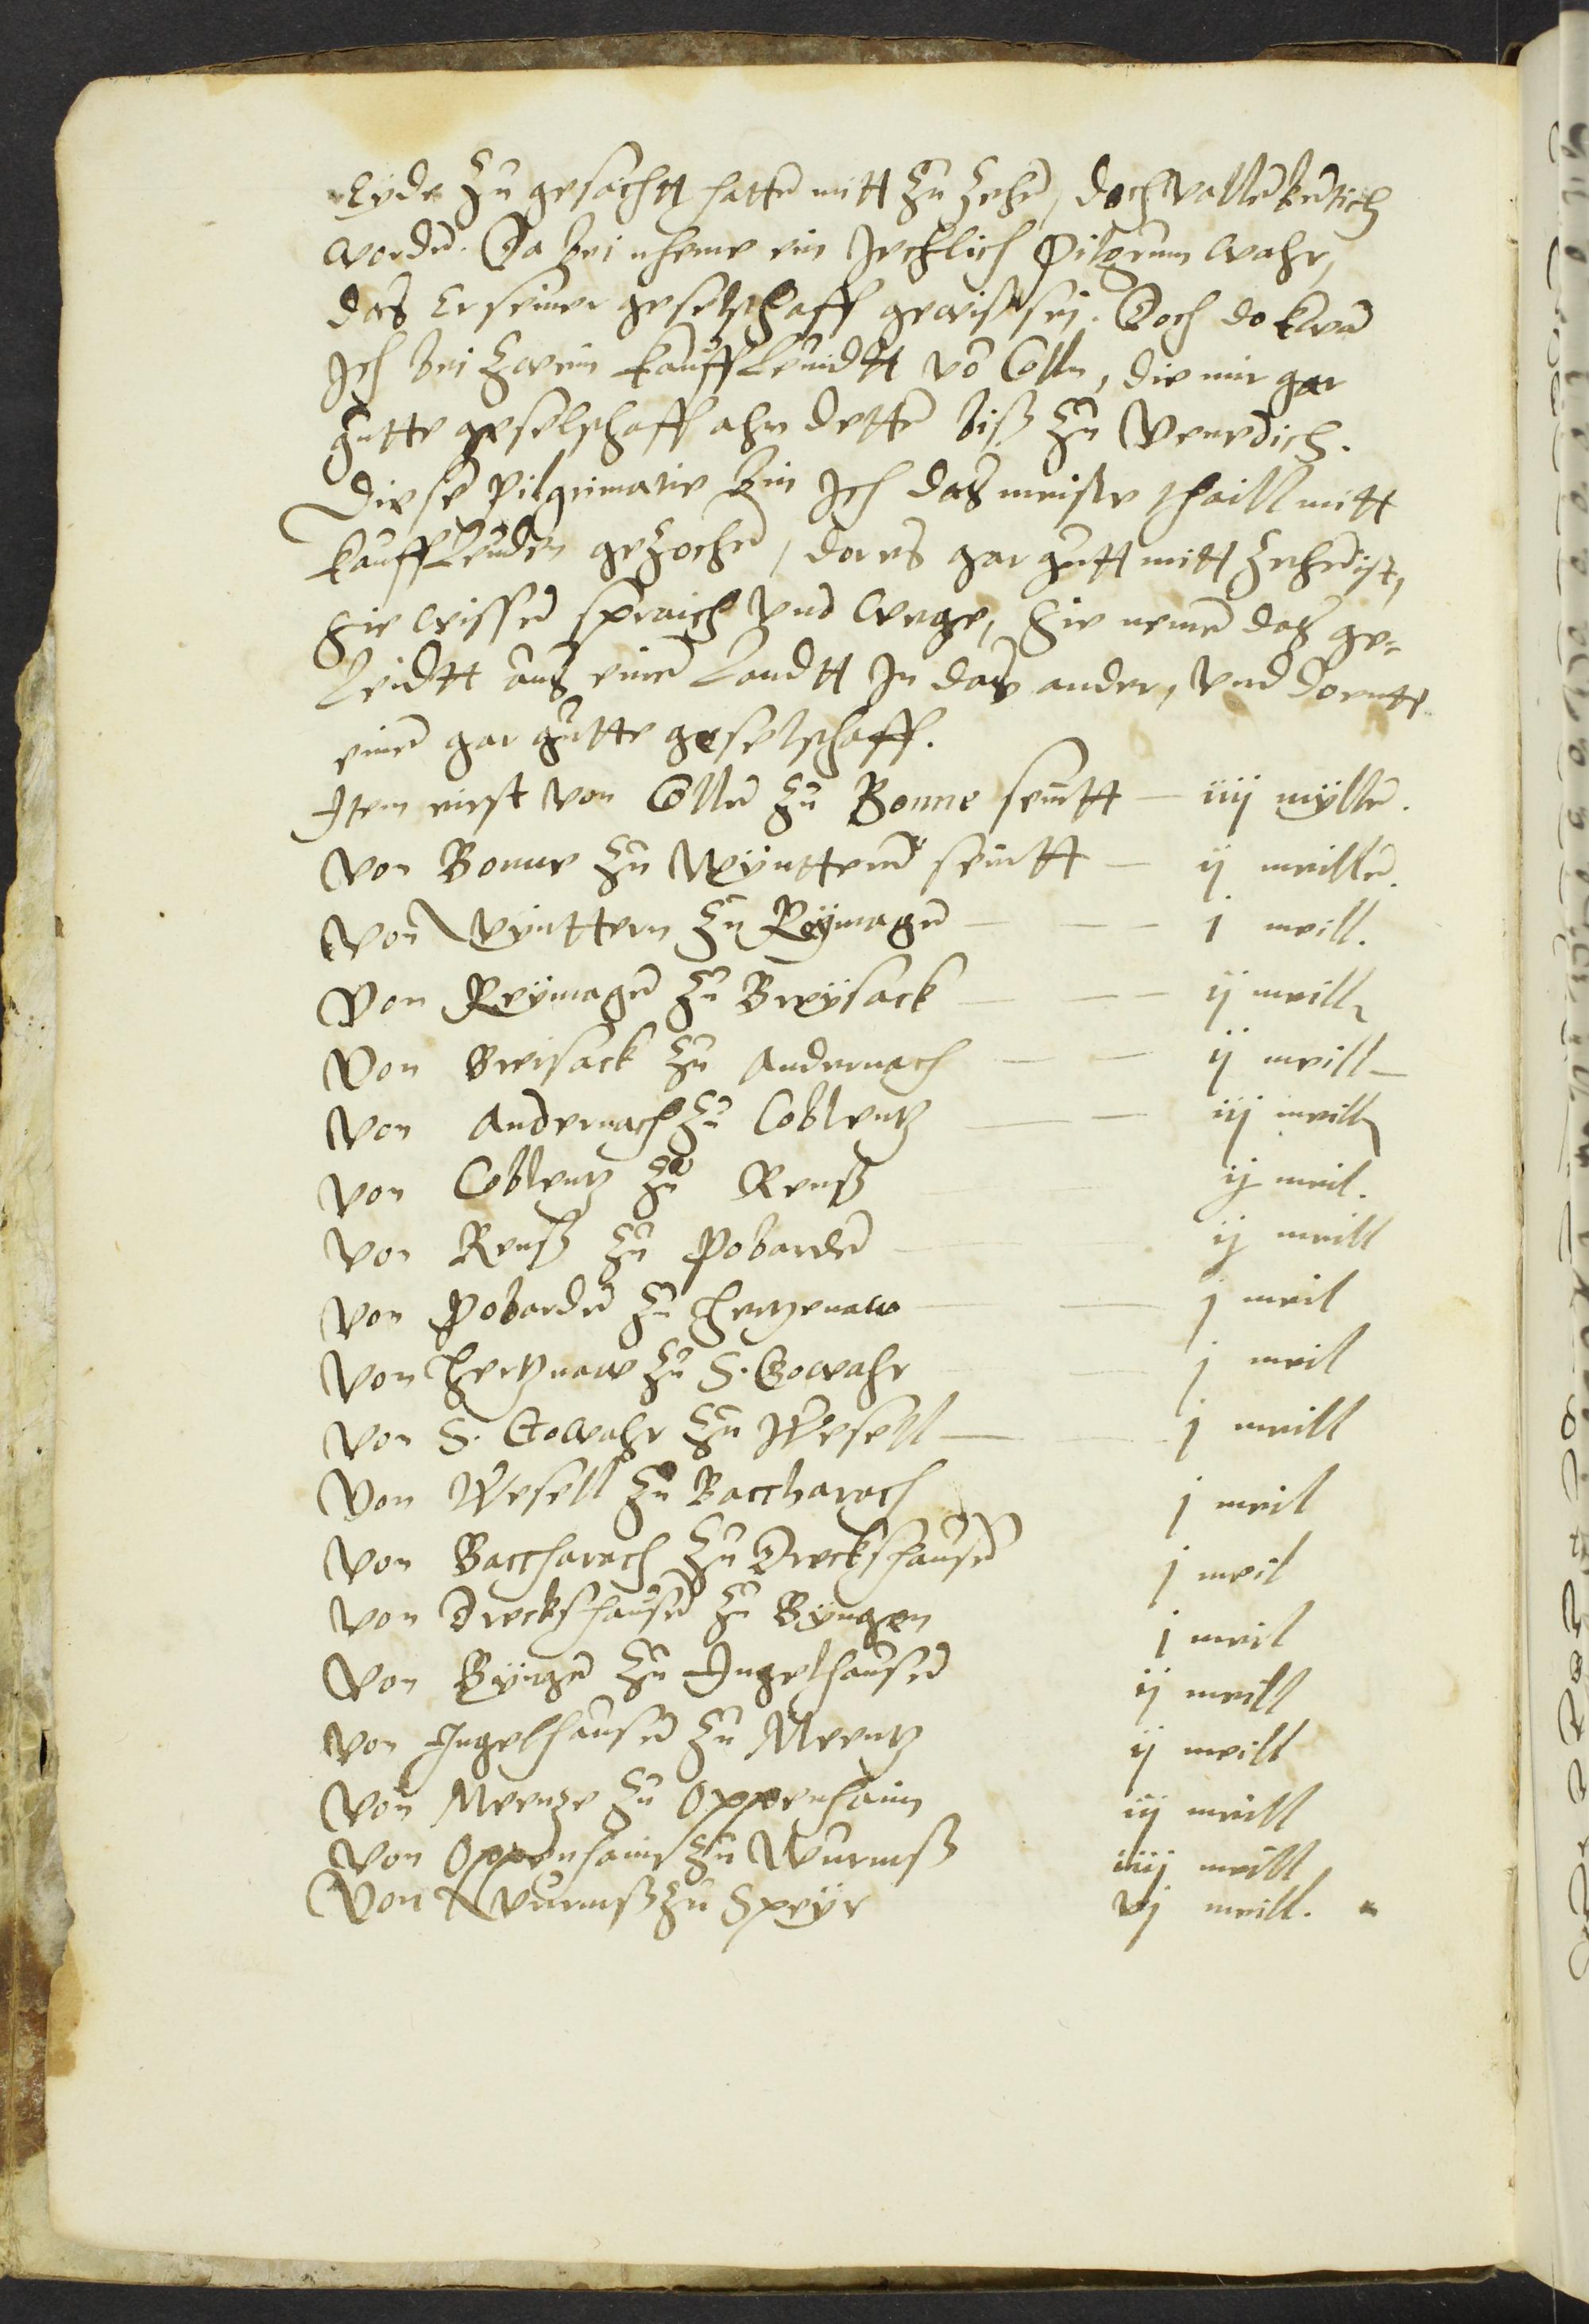 Eyde zu gesachtt hatten mitt zu zehen, doch wallenbedich
worden. Da bei nheme ein Jechlich Pilgrum wahr,
das Er seiner geselschaff gewiss sej. Doch do kwam
Ich bei zwein kauffleuidtt von Collen, die mir gar
gutte geselschaff ahn detten biß zu Venedich.
Diese pilgrimatie bin Ich das meiste thaill mitt
kauffleuden gezochen, dar es gar gutt mitt zehen ist,
Sie wissen spraich vnd wege, Sie nemen das ge-
leidtt aus einen Landtt In das ander, vnd doentt
einen gar gutte geselschaff.
Item eirst von Collen zu Bonne seintt — iiij myllen.
Von Bonne zu Wÿntteren seintt — ij meillen.
Von Wÿnttern zu Reÿmagen — — — j meill.
Von Reÿmagen zu Breÿsack — — — ij meill
Von Breisack zu Andernach — — ij meill —
Von Andernach zu Coblentz — — iij meill
Von Coblentz zu Renß ij meil.
Von Renß zu Pobarden ij meill
Von Pobarden zu Hertzenaw — — j meil
Von Hertznaw zu S. Gowahr — j meil
Von S. Gowahr zu Wesell — — j meill
Von Wesell zu Baccharach j meil
Von Baccharach zu Dreckshausen j meil
Von Dreckshausen zu Bÿngen j meil
Von Bÿngen zu Ingelhausen ij meill
Von Ingelhausen zu Meentz ij meill
Von Meentze zu Oppenhaim iij meill
Von Oppenhaim zu Wurmß iiij meill
Von Wurmß zu Speÿr vj meill.